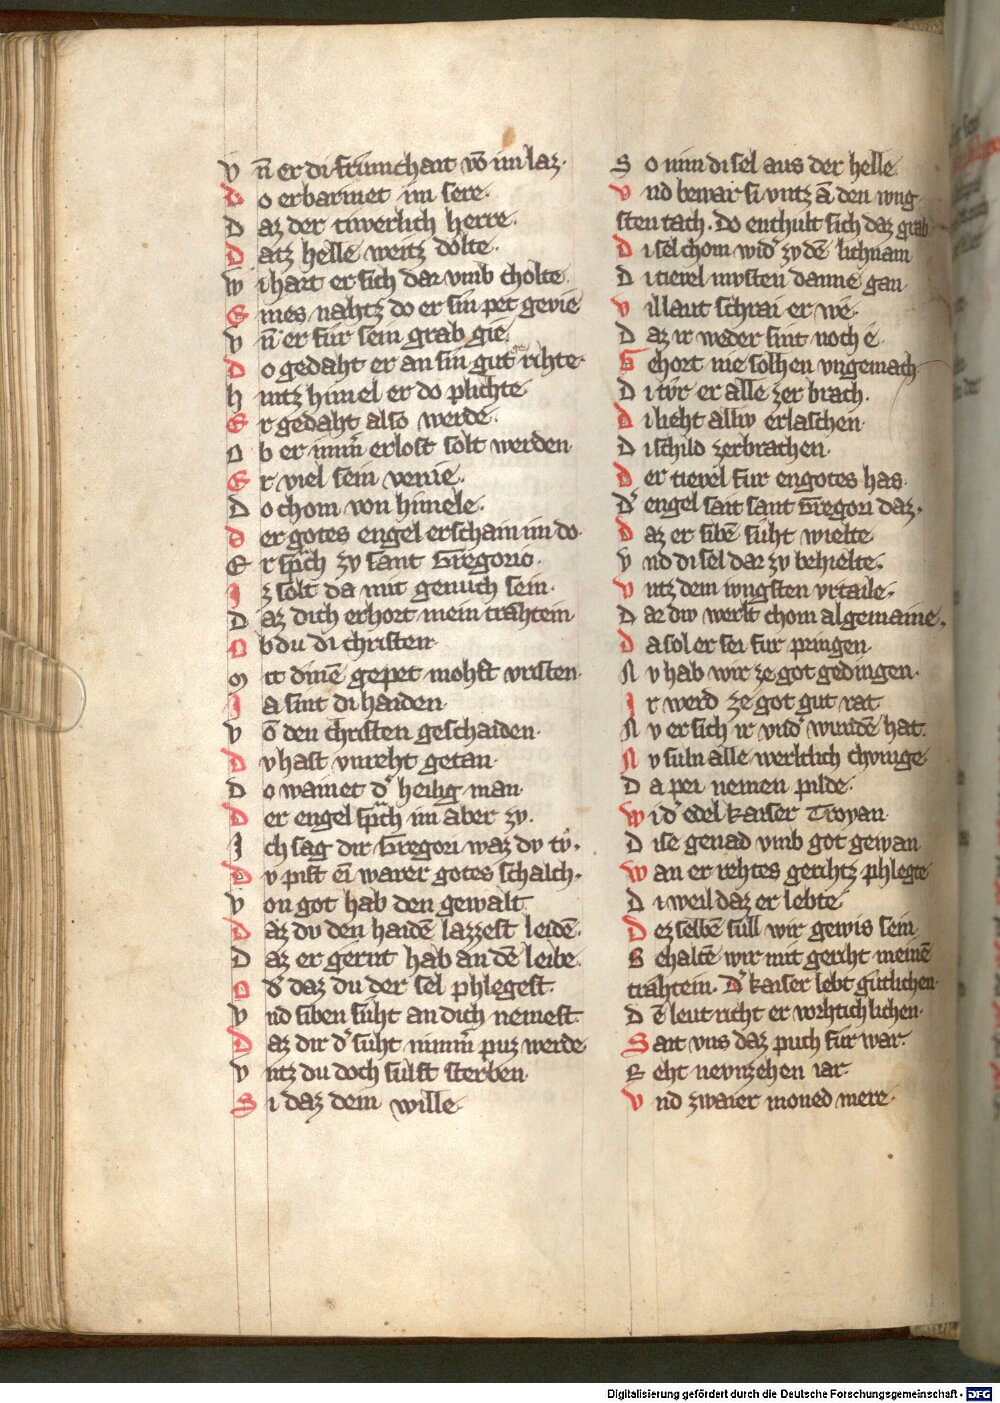 V n̄ er di frumchait vō im laz·
D o erbarmet im sere·
D az der tiwerlich herre·
D atz helle weitz dolte·
W i hart er sich dar vmb cholte·
E ines nahtz do er sin pet gevie
V n̄ er fur sein grab gie·
D o gedaht er an sin gut ge rihte·
H intz himel er do plichte·
E r gedaht also werde·
O b er imm̄ erlost solt werden·
E r viel sein venie·
D o chom von himele·
D er gotes engel erschain im do·
E r sp͛ch zv sant Gregorio·
I z solt da mit genuch sein·
D az dich erhort mein trähtein·
O b du di christen·
M it dinē gepet mohst vristen·
I a sint di haiden·
V ō den christen geschaiden·
D v hast vnreht getan·
D o wainet d͛ heilig man·
D er engel sp͛ch im aber zv·
I ch sag dir Gregori waz dv tv̊·
D v pist ei̅ warer gotes schalch·
V on got hab den gewalt·
D az du den haidē lazzest leidē·
D az er gernt hab an dē leibe·
O d͛ daz du der sel phlegest·
V nd siben suht an dich nemest·
D az dir d͛ suht nimm̄ puz werde·
V ntz du doch sulst sterben·
S i daz dein wille·
S o nim di sel aus der helle·
V nd bewar si vntz ā den iung
sten tach. Do enthult sich daz grab
D i sel chom wid͛ zv dē lichnam
D i tievel mvsten danne gan·
V il laut schrai er we·
D az ir weder sint noch e·
G ehort nie solhen vngemach·
D i tvr er alle zer brach·
D i licht alliv erlaschen·
D i schild zerbrachen·
D er tievel fur en gotes has·
D͛ engel sait sant Gregori daz·
D az er sibē suht wielte·
V nd di sel dar zv behielte·
V ntz dem ivngsten vrtaile·
D ar div werlt chom algemaine·
D a sol er sei fur pringen·
N v hab wir ze got gedingen·
I r werd ze got gut rat·
N v er sich ir vnd͛ wundē hat·
N v suln alle werltlich chvnige
D a pei nemen pilde·
W i d͛ edel kaiser Troyan·
D ise genad vmb got gewan·
W an er rehtes gerihtz phlegte
D i weil daz er lebte·
D ez selbē sull wir gewis sein·
B ehaltē wir mit geriht meinē
trähtein. D͛ kaiser lebt gutlichen·
D ē leut richt er vorhtichlichen·
S ait vns daz puch fur war·
R eht nevnzehen iar·
V nd zwaier moned mere·
Digitalisierung gefördert durch die Deutsche Forschungsgemeinschaft - DFG